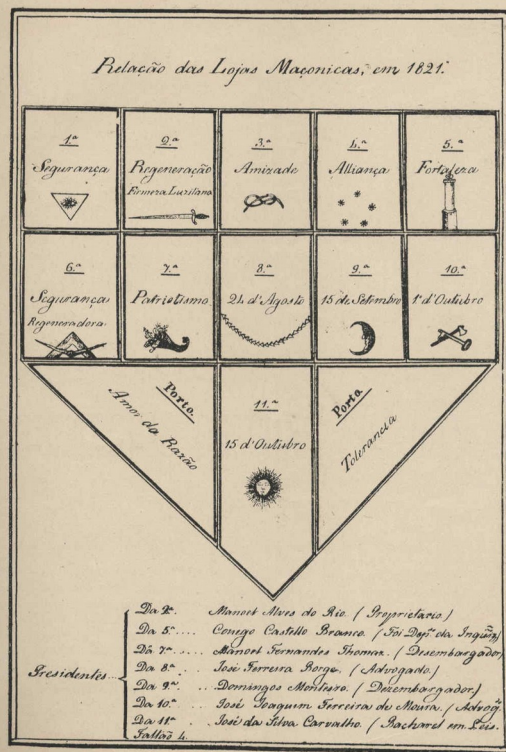 Relação das Lojas Maçonicas, em 1821.
1.ª
Segurança
2.ª
Regeneração
Firmeza Luzitana
3.ª
Amizade
4.ª
Alliança
5.ª
Fortaleza
6.ª
Segurança
Regeneradora
7.ª
Patriotismo
8.ª
24 d'Agosto
9.ª
15 de Setembro
10.ª
1º d'Outubro
Porto.
Amor da Razão
11.ª
15 d'Outubro
Porto
Tolerancia
Presidentes
Da 2ª. Manoel Alves do Rio. (Proprietario)
Da 5.ª .... Conego Castello Branco. (Foi Dep.º da Inquiz.)
Da 7.ª .... Manoel Fernandes Thomaz. (Desembargador)
Da 8.ª .. José Ferreira Borge. (Advogado.)
Da 9.ª ... Domingos Monteiro. (Dezembargador.)
Da 10.ª ... José Joaquim Ferreira de Moura. (Advog.º
Da 11.ª . José da Silva Carvalho. (Bacharel em Leis.
Faltão 4.